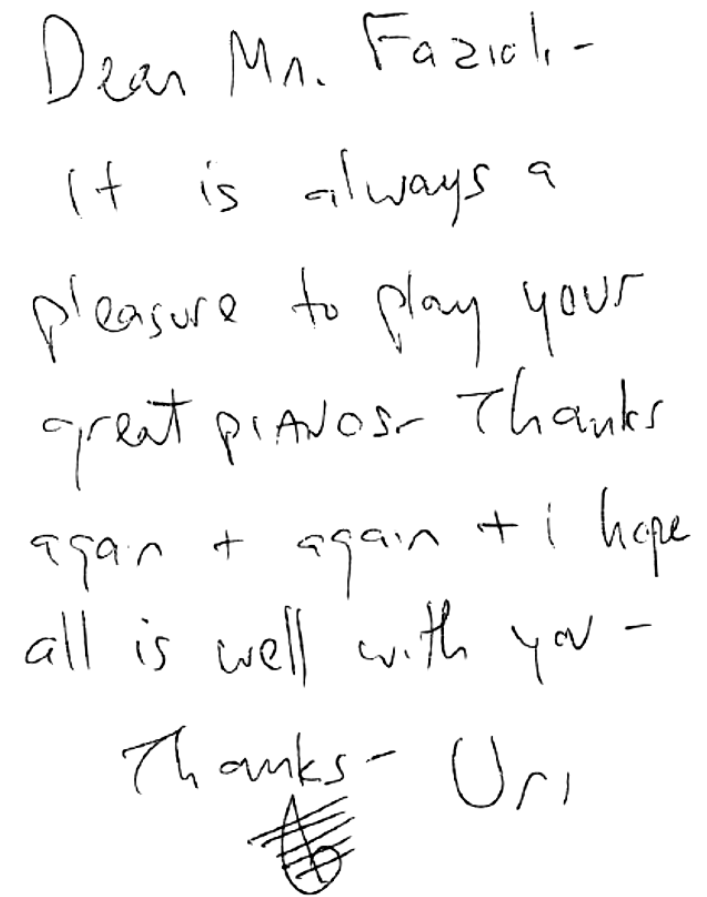 Dear Mr. Fazioli -
it is always a
pleasure to play your
great piANOS- Thanks
again + again + i hope
all is well with you -
Thanks - Uri